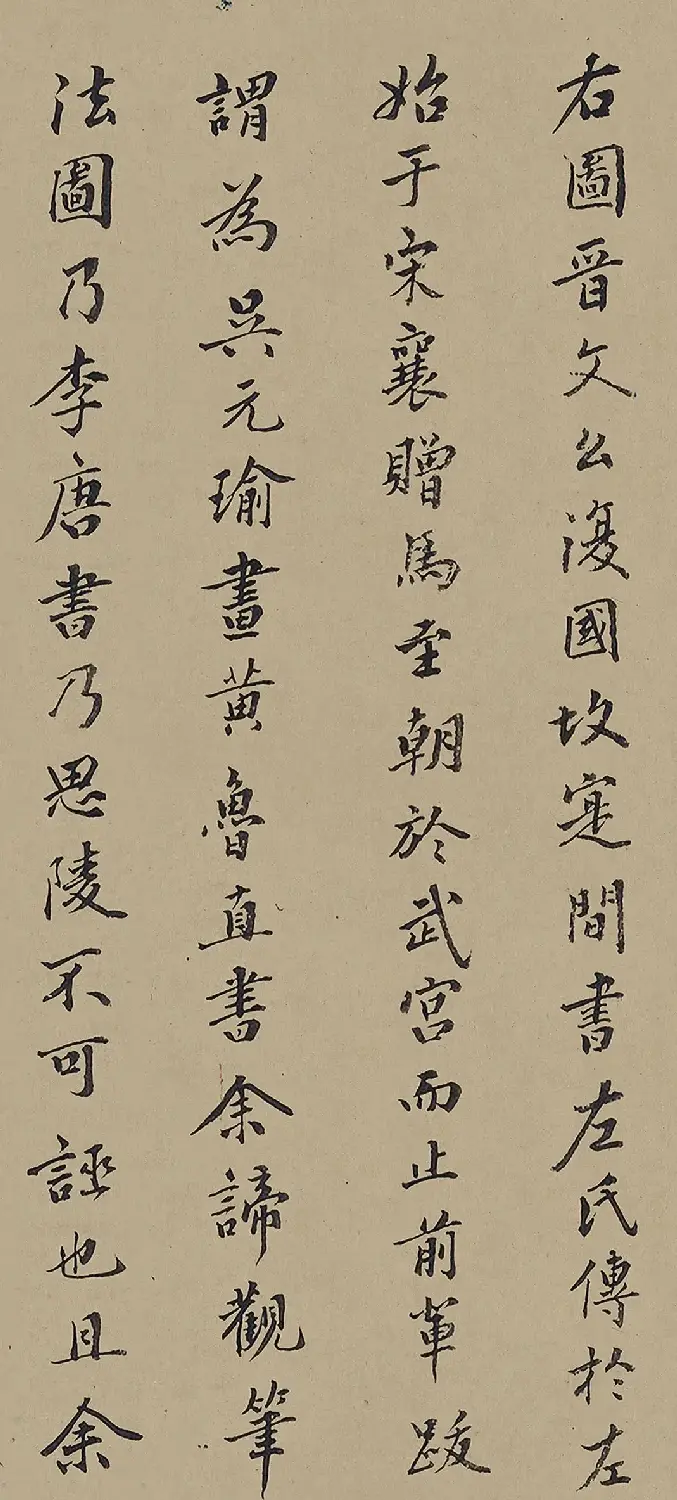 右圖晋文公復國故寔間書左氏傳於左
始于宋襄贈馬至朝於武宮而止前軰跋
謂為吳元瑜畫黃魯直書余諦觀筆
法圖乃李唐書乃思陵不可誣也且余